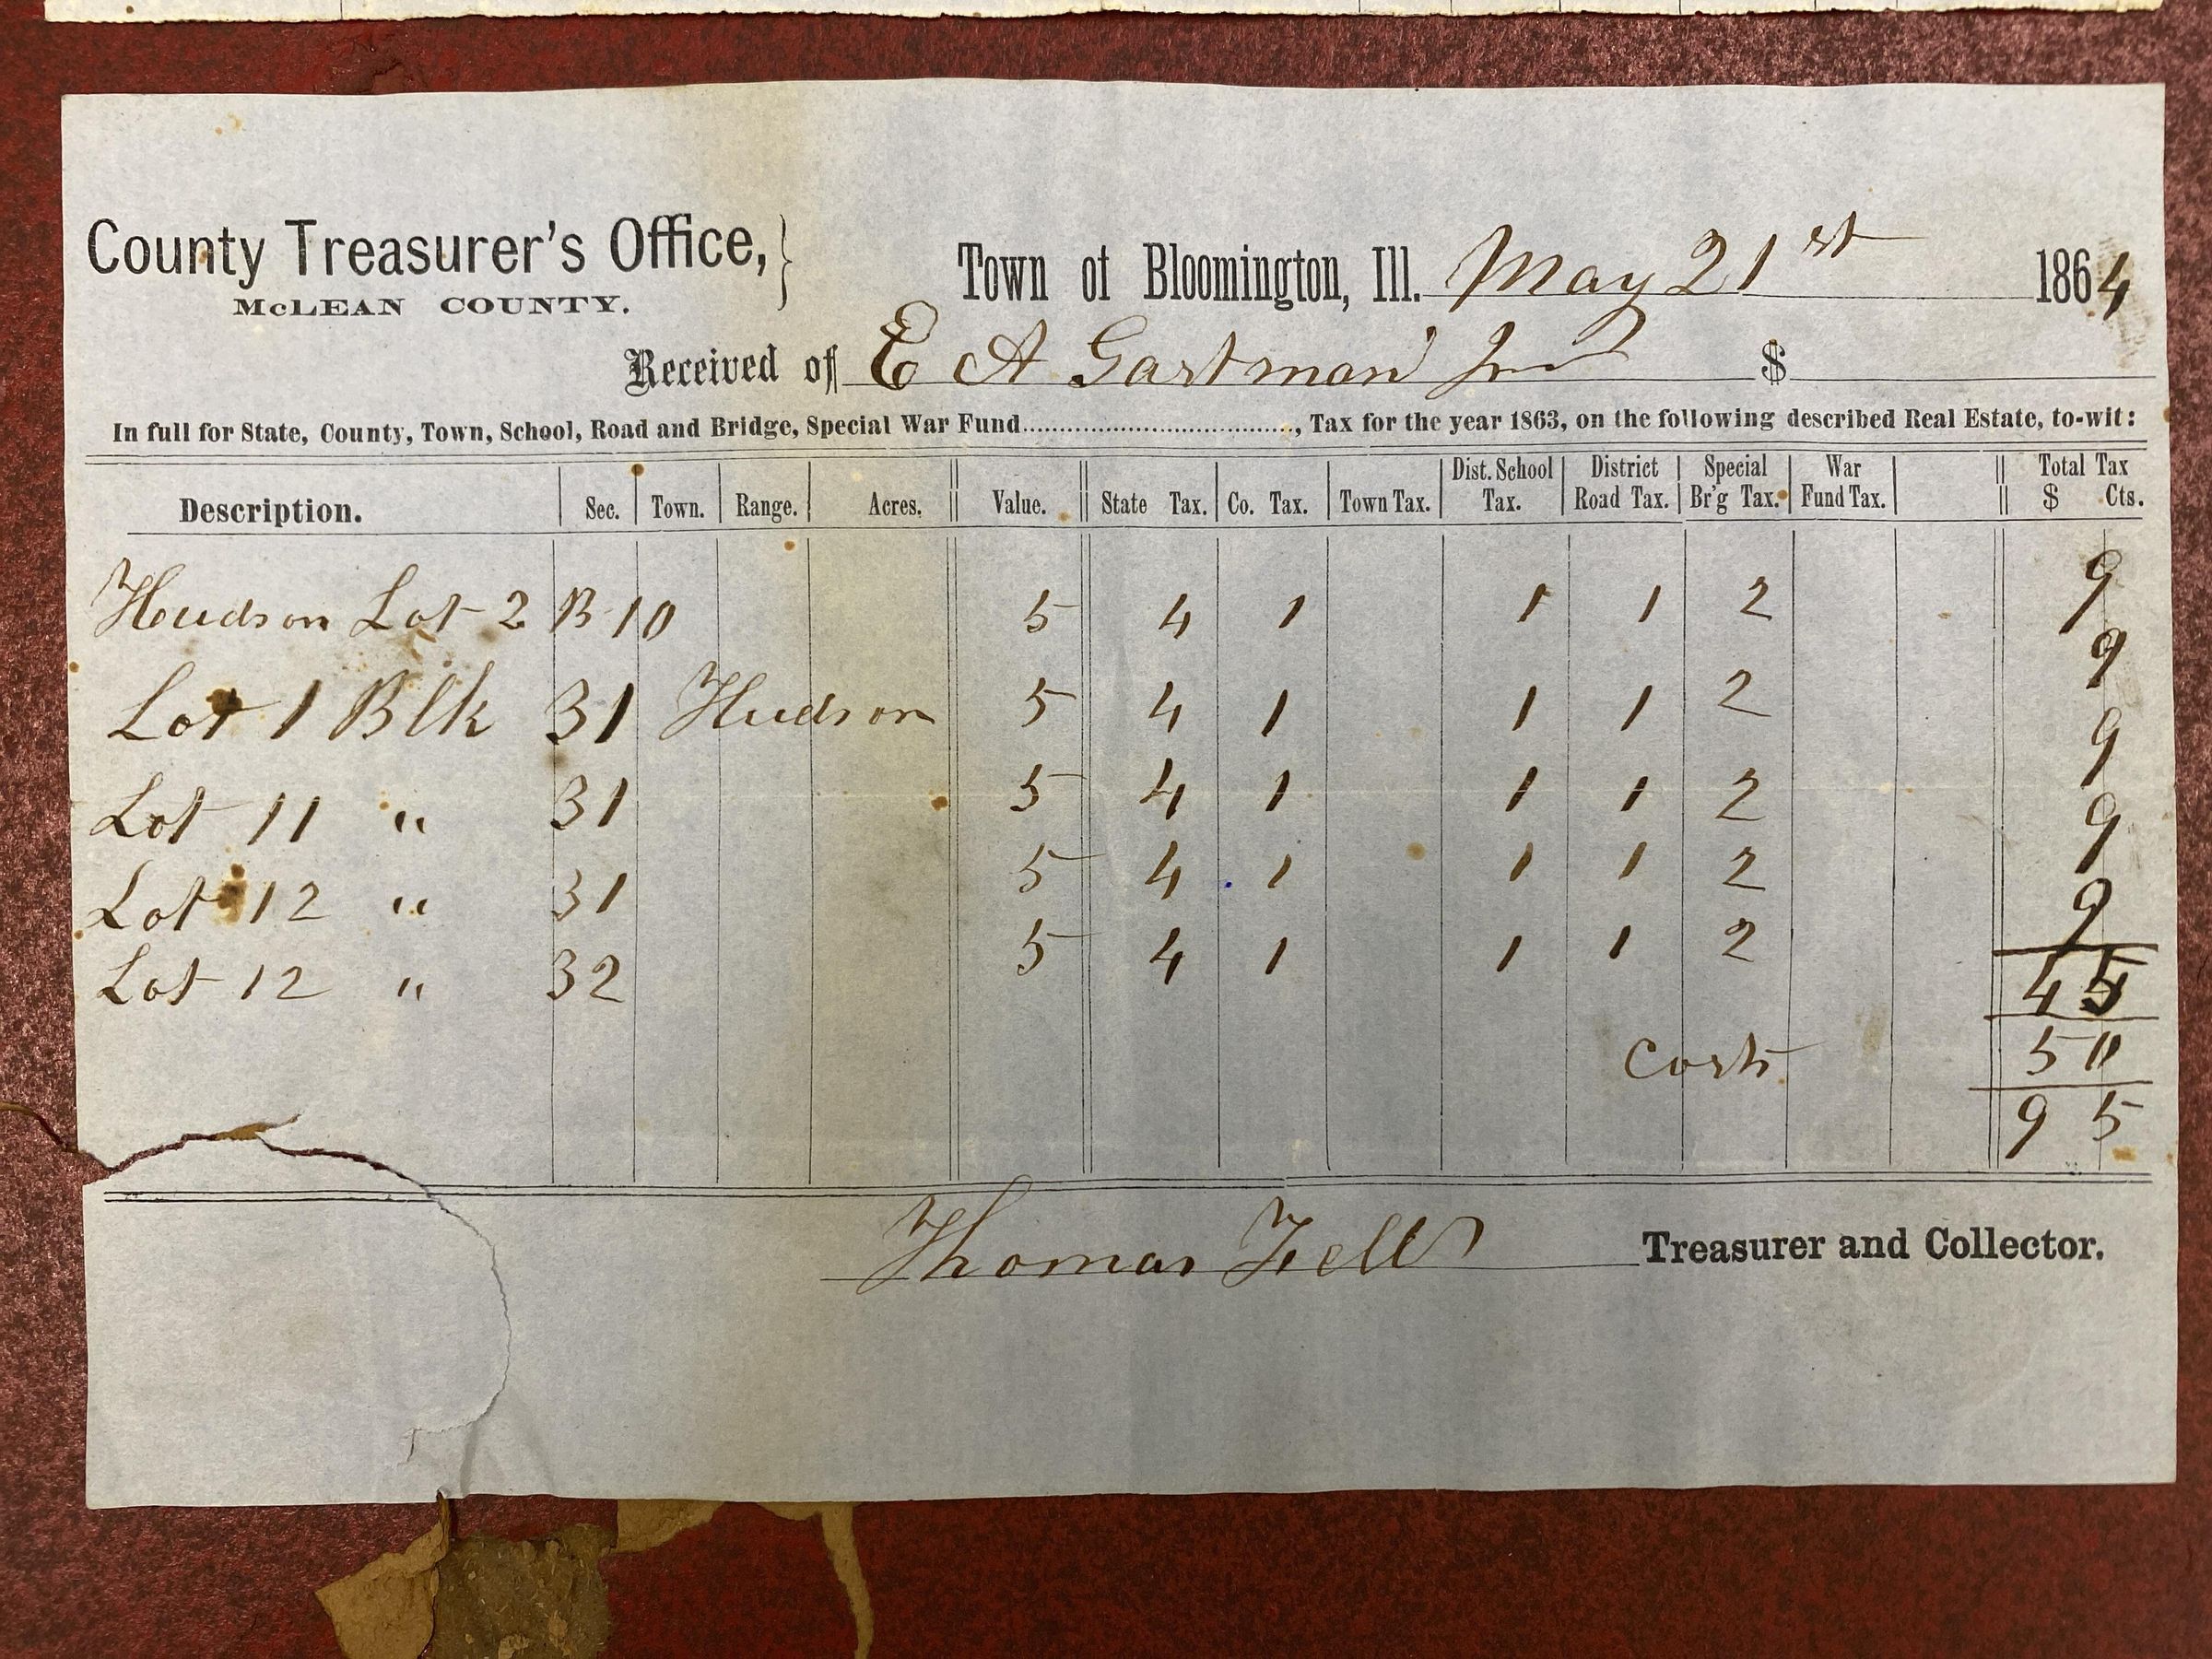 County Treasurer's Office, }
McLEAN COUNTY.
Town of Bloomington, Ill. May 21st 1864
Received of E A Gastman Jnr $
In full for State, County, Town, School, Road and Bridge, Special War Fund......................................, Tax for the year 1863, on the following described Real Estate, to-wit:
Description. Sec. Town. Range. Acres. Value. State Tax. Co. Tax. Town Tax. Dist. School Tax. District Road Tax. Special Br'g Tax. War Fund Tax. Total Tax $ Cts.
Hudson Lot 2 B 10 5 4 1 1 1 2 9
Lot 1 Blk 31 Hudson 5 4 1 1 1 2 9
Lot 11 " 31 5 4 1 1 1 2 9
Lot 12 " 31 5 4 1 1 1 2 9
Lot 12 " 32 5 4 1 1 1 2 9
45
Costs 50
95
Thomas Fell Treasurer and Collector.